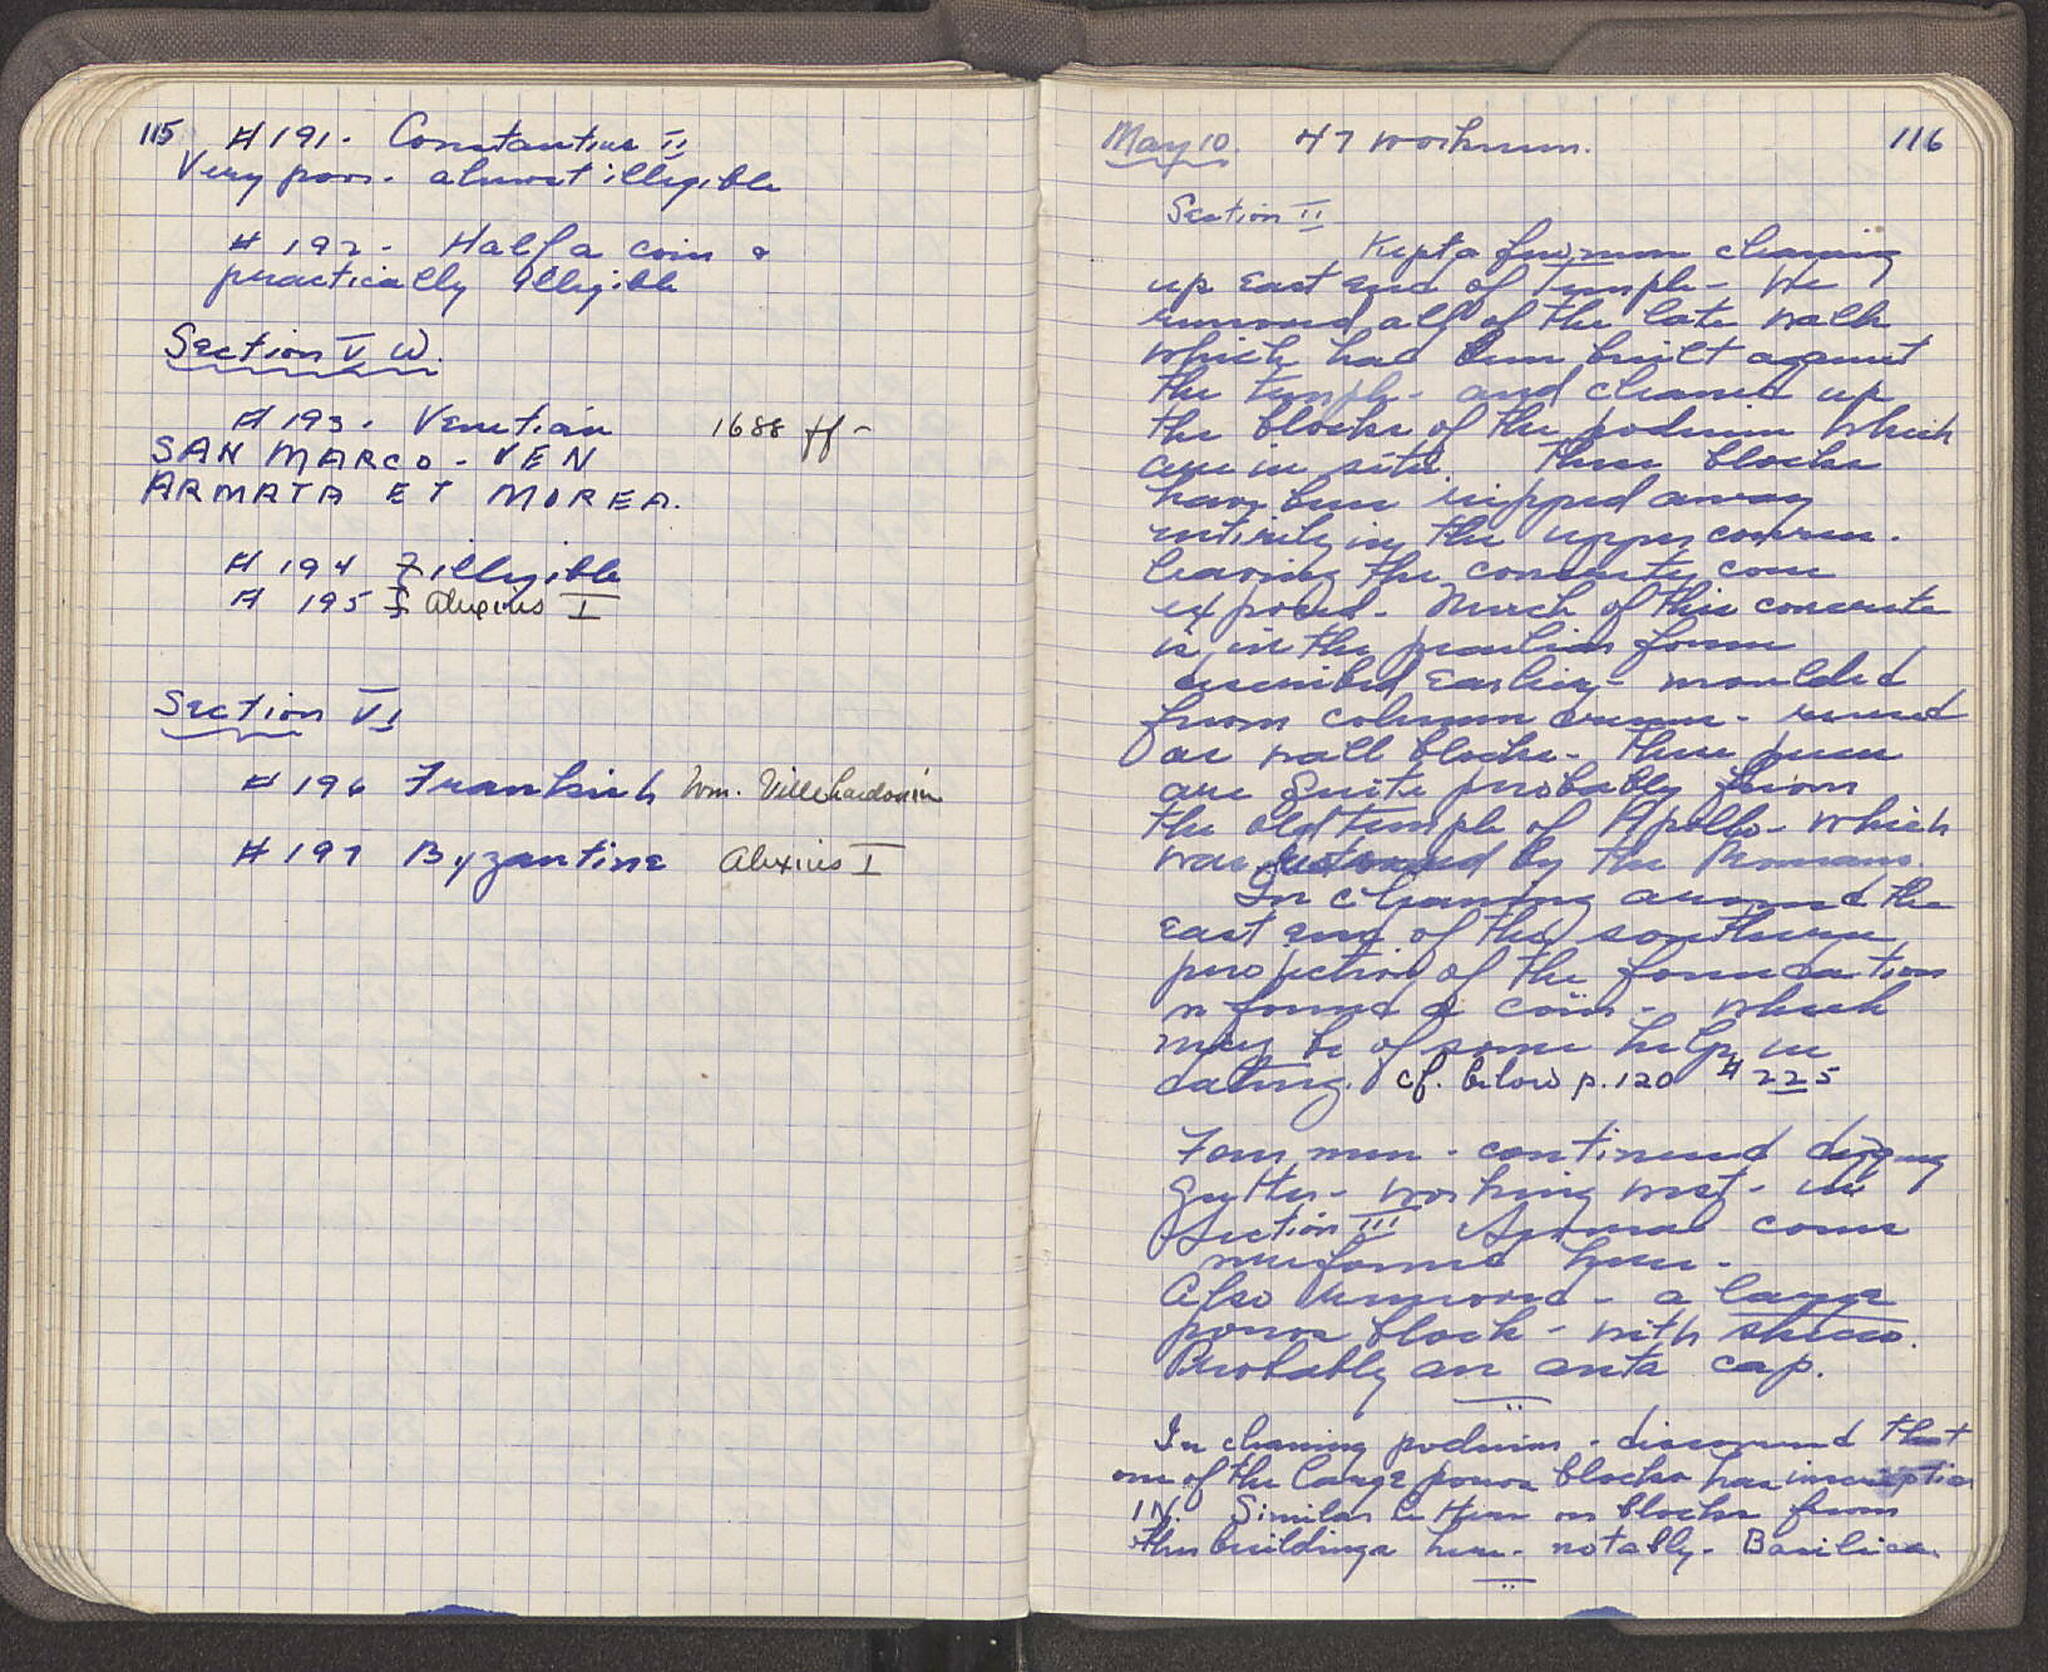 115 # 191. Constantius II
Very poor. almost illegible
# 192 - Half a coin &
practically illegible
Section V W.
# 193. Venetian 1688 ff -
SAN MARCO - VEN
ARMATA ET MOREA.
# 194 illegible
# 195 Alexius I
Section VI
# 196 Frankish Wm. Villehardouin
# 197 Byzantine Alexius I
May 10. 47 workmen. 116
Section II
Kept a few men cleaning
up East end of Temple - We
removed all of the late walls
which had been built against
the temple - and cleaned up
the blocks of the podium which
are in situ. These blocks
have been ripped away
entirely in the upper courses.
leaving the concrete core
exposed. Much of this concrete
is in the peculiar form
described earlier - moulded
from column drums - reused
as wall blocks. These pieces
are quite probably from
the old temple of Apollo - which
was by the Romans.
In cleaning around the
east end of the southern
projection of the foundation
we found a coin - which
may be of some help in
dating. cf. below p. 120 # 225
Four men - continued digging
gutter - working west - in
Section III Several coins
were found here -
Also removed - a large
poros block - with
Probably an anta cap.
In cleaning podium - discovered that
one of the large poros blocks has inscription
IN. Similar letters on blocks from
other buildings here - notably - Basilica.